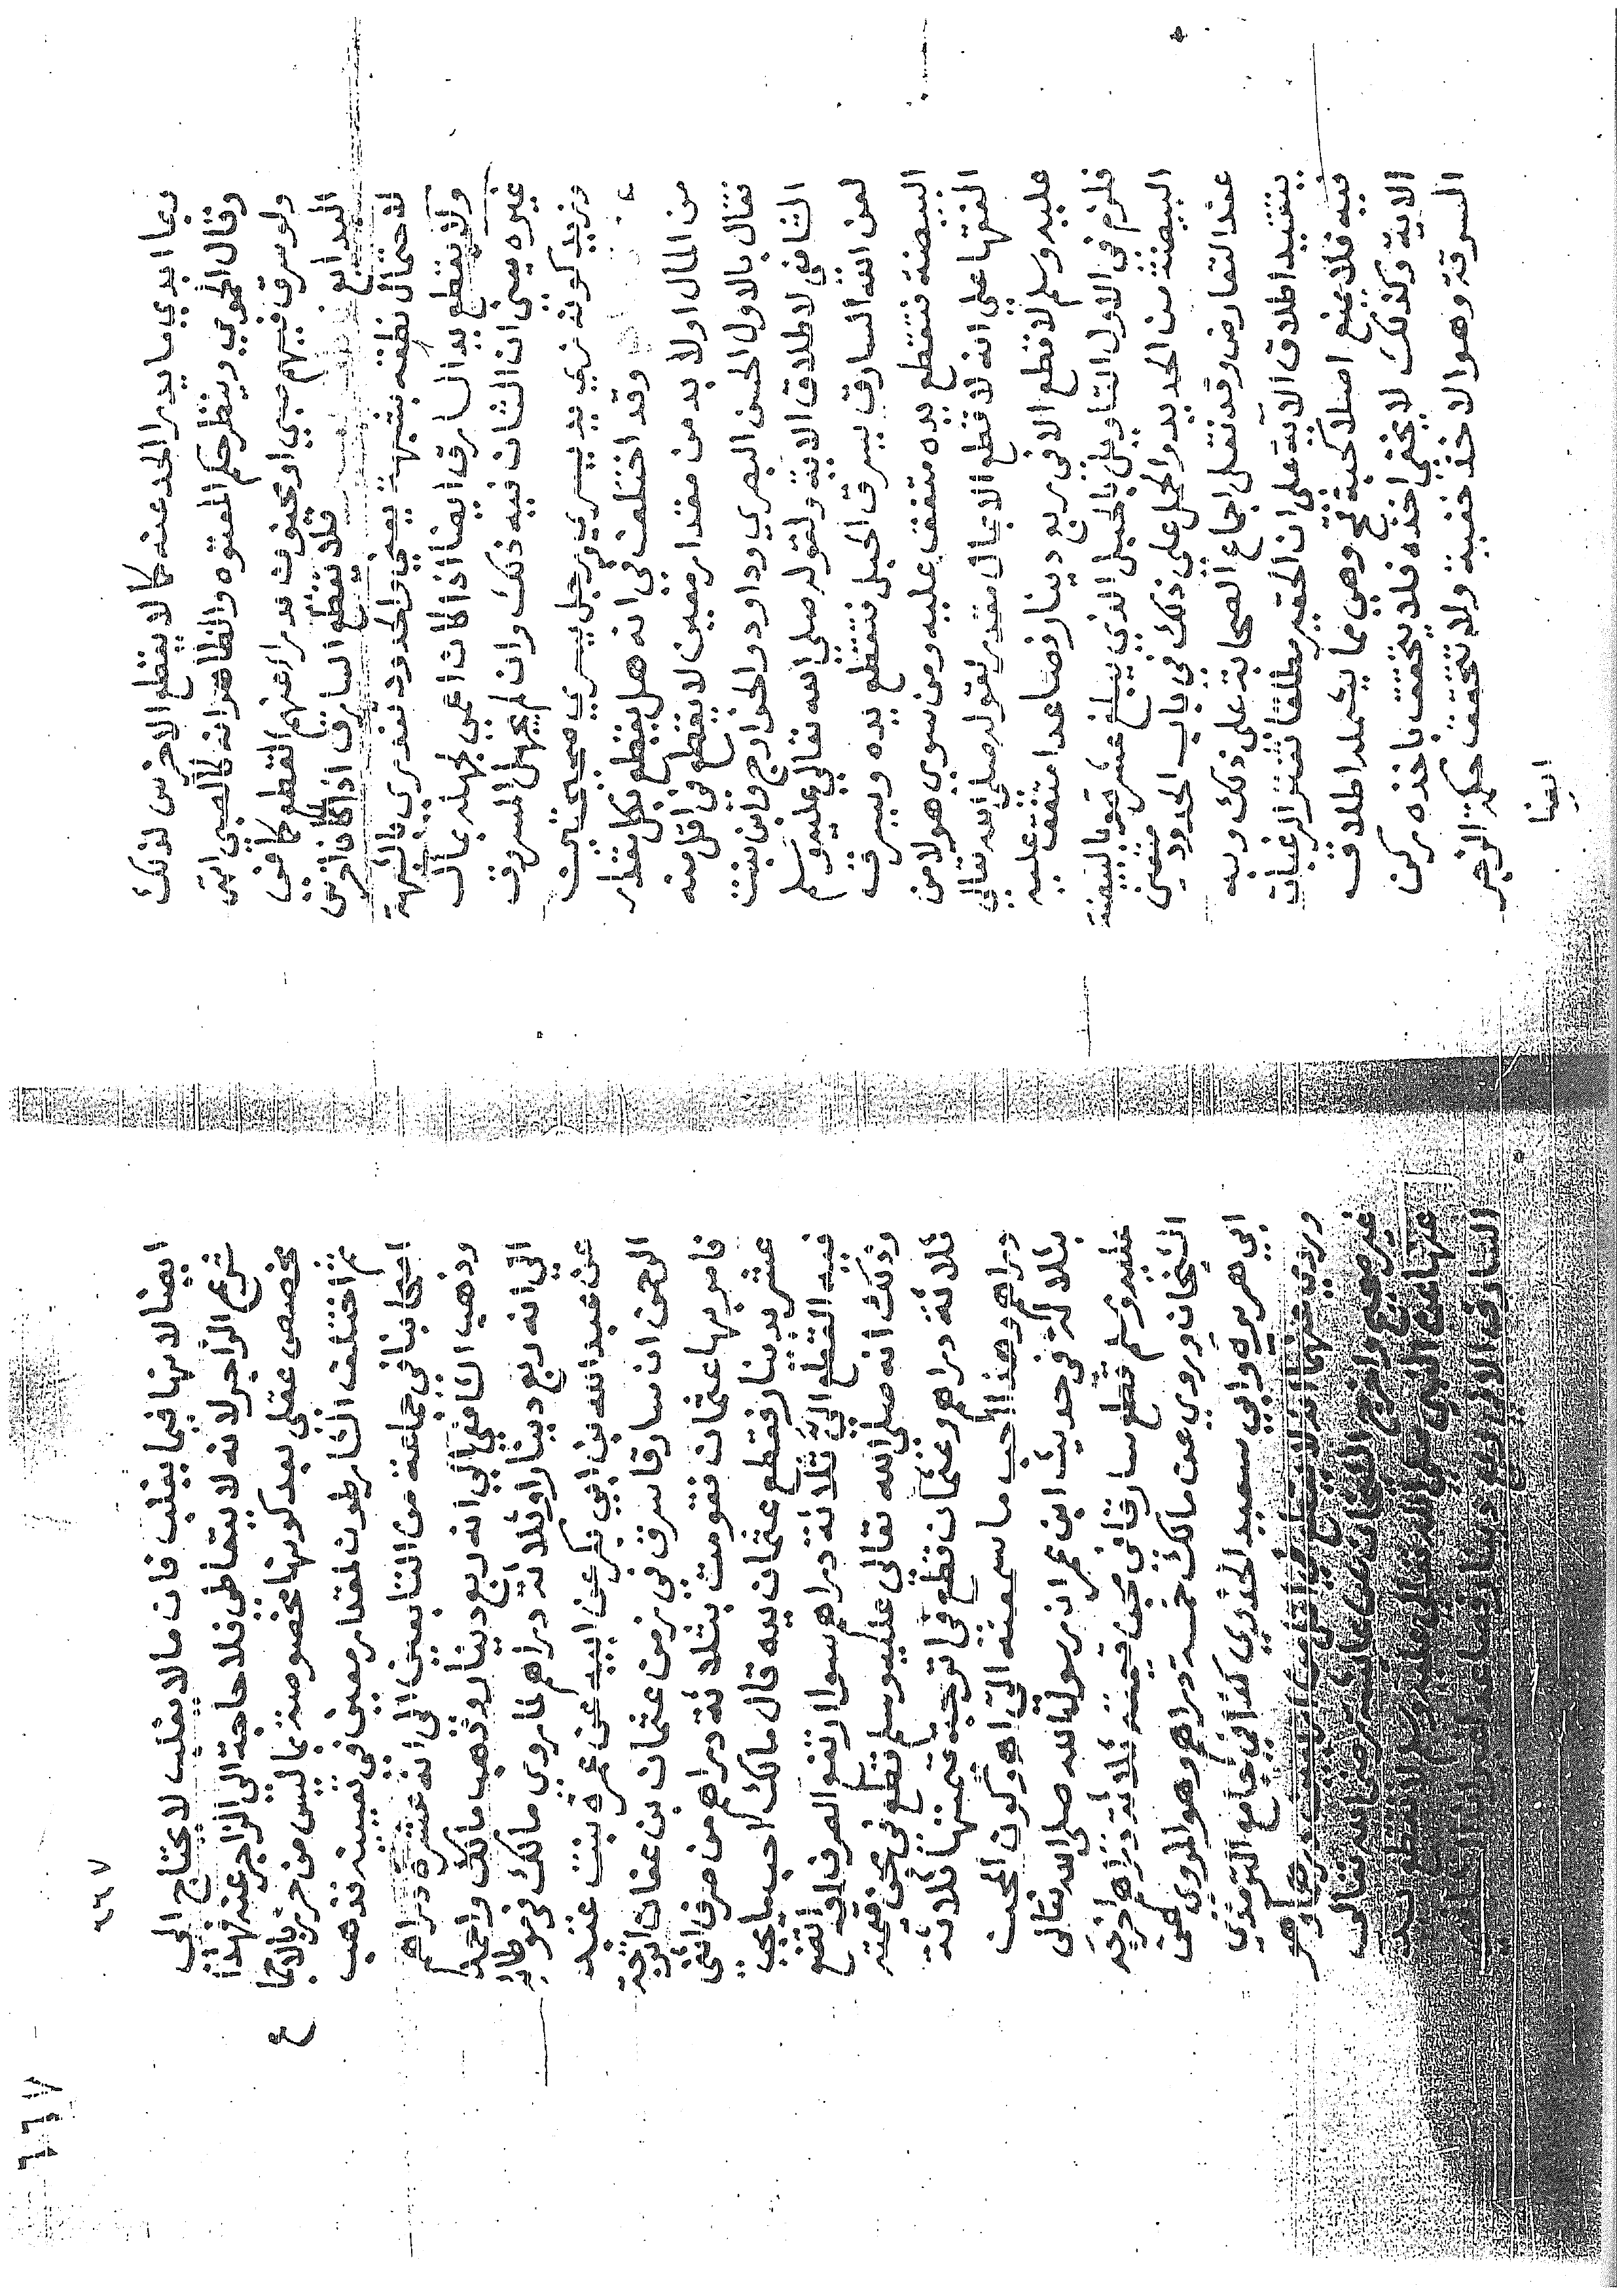 ربما ابدي ما يدرا الحد عنه كما لا يقطع الاخرس لذلك
وقال الحموي وينظر حكم المعتوه والظاهر انه كالصبي انتهى
ولو سرق فيهم صبي او مجنون يدرا عنهم القطع كما في
البدائع فلا تقطع السارق اذا كان اخرس
لاحتمال نطقه بشبهة يعني والحدود تندرئ بالشبهة
ولا يقطع يد السارق ايضا اذا كان اعمى لجهله بمال
غيره يعني ان الشان فيه ذلك وان لم يجهل المسروق
ونزيد كونه ذي يد يسرى ورجل يسرى صحيحتين
وقد اختلف في انه هل يقطع بكل مقدار
من المال اولا بد من مقدار معين لا يقطع في اقل منه
فقال بالاول الحسن البصري وداود والخوارج وابن بنت
الشافعي لاطلاق الاية ولقوله صلى الله تعالى عليه وسلم
لعن الله السارق يسرق الحبل فتقطع يده ويسرق
البيضة فتقطع يده متفق عليه ومن سوى هولا من
الفقها على انه لا قطع الا بمال مقدر لقوله صلى الله تعالى
عليه وسلم لا قطع الا في ربع دينار فصاعدا متفق عليه
فلزم في الاول التاويل بالحبل الذي يبلغ عشرة وبالبيضة
البيضة من الحديد والحمل على ذلك في باب الحدود متعين
عند التعارض وقد نقل اجماع الصحابة على ذلك وبه
يتقيد اطلاق الاية على ان الحقير مطلقا تفتر الرغبات
فيه فلا يمنع اصلا كحبة قمح وهي مما يشمله اطلاق
الاية وكذلك لا يخفى اخذه فلا يتحقق باخذه ركن
السرقة وهو الاخذ خفية ولا تتحقق حكمة الزجر
ايضا
٦٦٧
٦٦٧
ايضا لانها فيما يغلب فان ما لا يغلب لا يحتاج الى
شرع الزاجر لانه لا يتعاطى فلا حاجة الى الزاجر عنه فهذا
مخصص عقلي بعد كونها مخصوصة بما ليس من حرز بالاجما
ع
ثم اختلف الشارطون لمقدار معين في تعيينه فذهب
اصحابنا في جماعة من التابعين الى انه عشرة دراهم
وذهب الشافعي الى انه ربع دينار وذهب مالك واحمد
الى انه ربع دينار او ثلاثة دراهم لما روى مالك في موطائه
عن عبد الله بن ابي بكر عن ابيه عن عمرة بنت عبد
الرحمن ان سارقا سرق في زمن عثمان بن عفان اترجة
فامر بها عثمان فقومت بثلاثة دراهم من صرف اثنى
عشر بدينار فقطع عثمان يده قال مالك احب ما يجب
فيه القطع الي ثلاثة دراهم سوا ارتفع الصرف او اتضع
وذلك انه صلى الله تعالى عليه وسلم قطع في مجن قيمته
ثلاثة دراهم وعثمان قطع في اترجة ثمنها ثلاثة
دراهم وهذا احب ما سمعته الي اه وكون المجن
بثلاثة في حديث ابن عمر ان رسول الله صلى الله تعالى
عليه وسلم قطع سارقا في مجن قيمته ثلاثة دراهم اخرجه
الشيخان وروي عن مالك خمسة دراهم وهو المروي عن
ابي هريرة وابي سعيد الخدري كذا في جامع الترمذي
غير صحيح واخرج الشيخان عن عائشة رضي الله تعالى
عنها عن النبي صلى الله تعالى عليه وسلم لا تقطع يد
السارق الا في ربع دينار فصاعدا